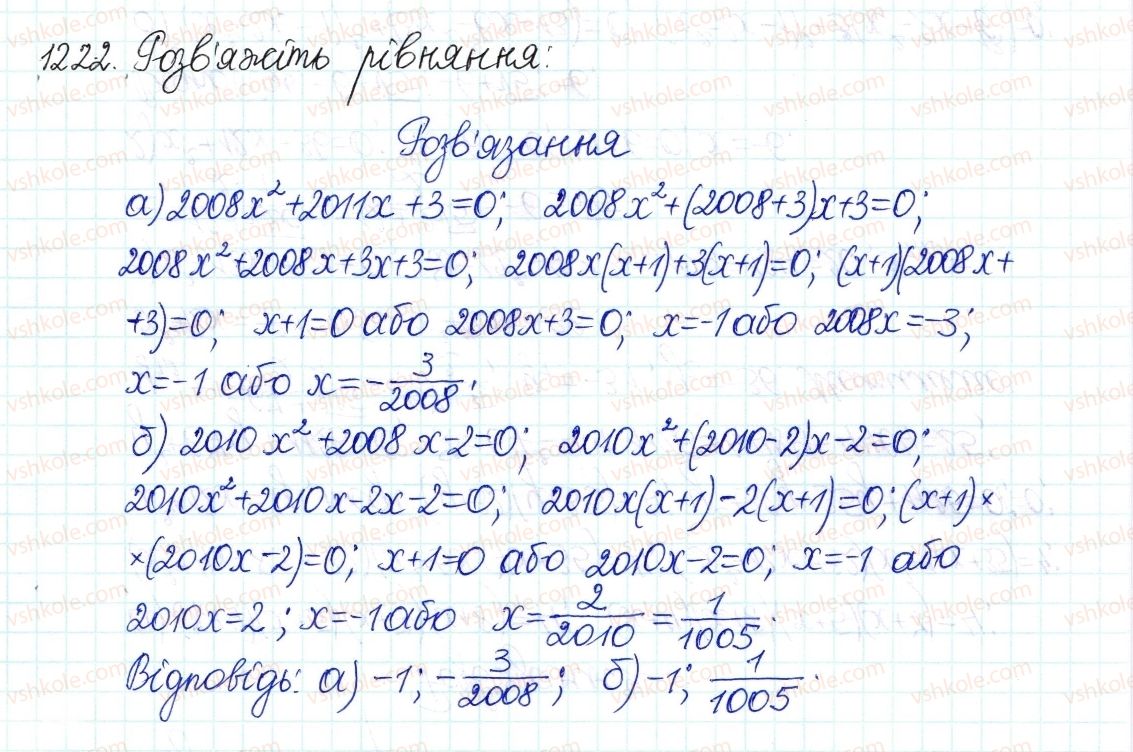 1222. Розв'яжіть рівняння:
Розв'язання
а) 2008x²+2011x+3=0; 2008x²+(2008+3)x+3=0;
2008x²+2008x+3x+3=0; 2008x(x+1)+3(x+1)=0; (x+1)(2008x+
+3)=0; x+1=0 або 2008x+3=0; x=-1 або 2008x=-3;
x=-1 або x=-3/2008.
б) 2010x²+2008x-2=0; 2010x²+(2010-2)x-2=0;
2010x²+2010x-2x-2=0; 2010x(x+1)-2(x+1)=0; (x+1)×
×(2010x-2)=0; x+1=0 або 2010x-2=0; x=-1 або
2010x=2; x=-1 або x=2/2010=1/1005.
Відповідь: а) -1; -3/2008; б) -1; 1/1005.